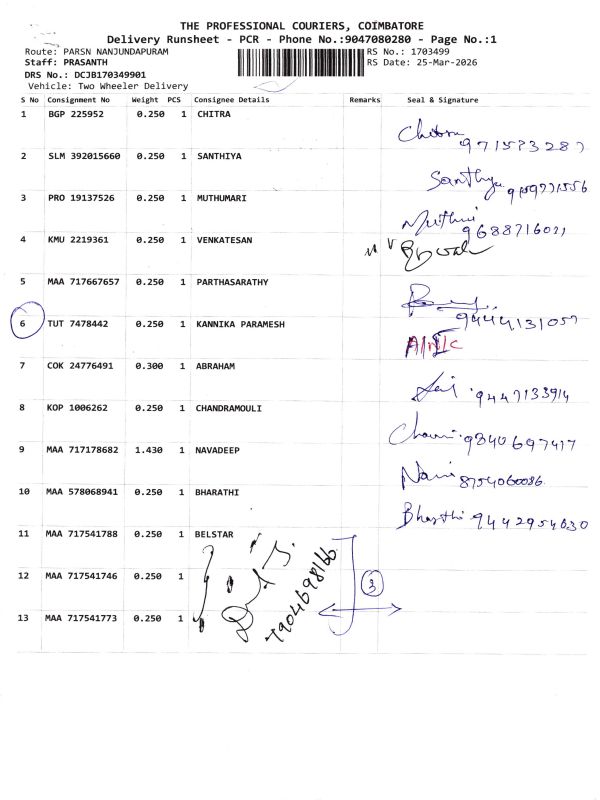 THE PROFESSIONAL COURIERS, COIMBATORE
Delivery Runsheet - PCR - Phone No.:9047080280 - Page No.:1
Route: PARSN NANJUNDAPURAM RS No.: 1703499
Staff: PRASANTH RS Date: 25-Mar-2026
DRS No.: DCJB170349901
Vehicle: Two Wheeler Delivery
S No Consignment No Weight PCS Consignee Details Remarks Seal & Signature
1 BGP 225952 0.250 1 CHITRA
Chitra 9715732
2 SLM 392015660 0.250 1 SANTHIYA
Santhiya
3 PRO 19137526 0.250 1 MUTHUMARI
Muthu 9688716011
4 KMU 2219361 0.250 1 VENKATESAN
5 MAA 717667657 0.250 1 PARTHASARATHY
9444131057
6 TUT 7478442 0.250 1 KANNIKA PARAMESH
7 COK 24776491 0.300 1 ABRAHAM
9447133914
8 KOP 1006262 0.250 1 CHANDRAMOULI
9840697417
9 MAA 717178682 1.430 1 NAVADEEP
8754060086
10 MAA 578068941 0.250 1 BHARATHI
Bharthi 9442954630
11 MAA 717541788 0.250 1 BELSTAR
12 MAA 717541746 0.250 1
3
7904698166
13 MAA 717541773 0.250 1